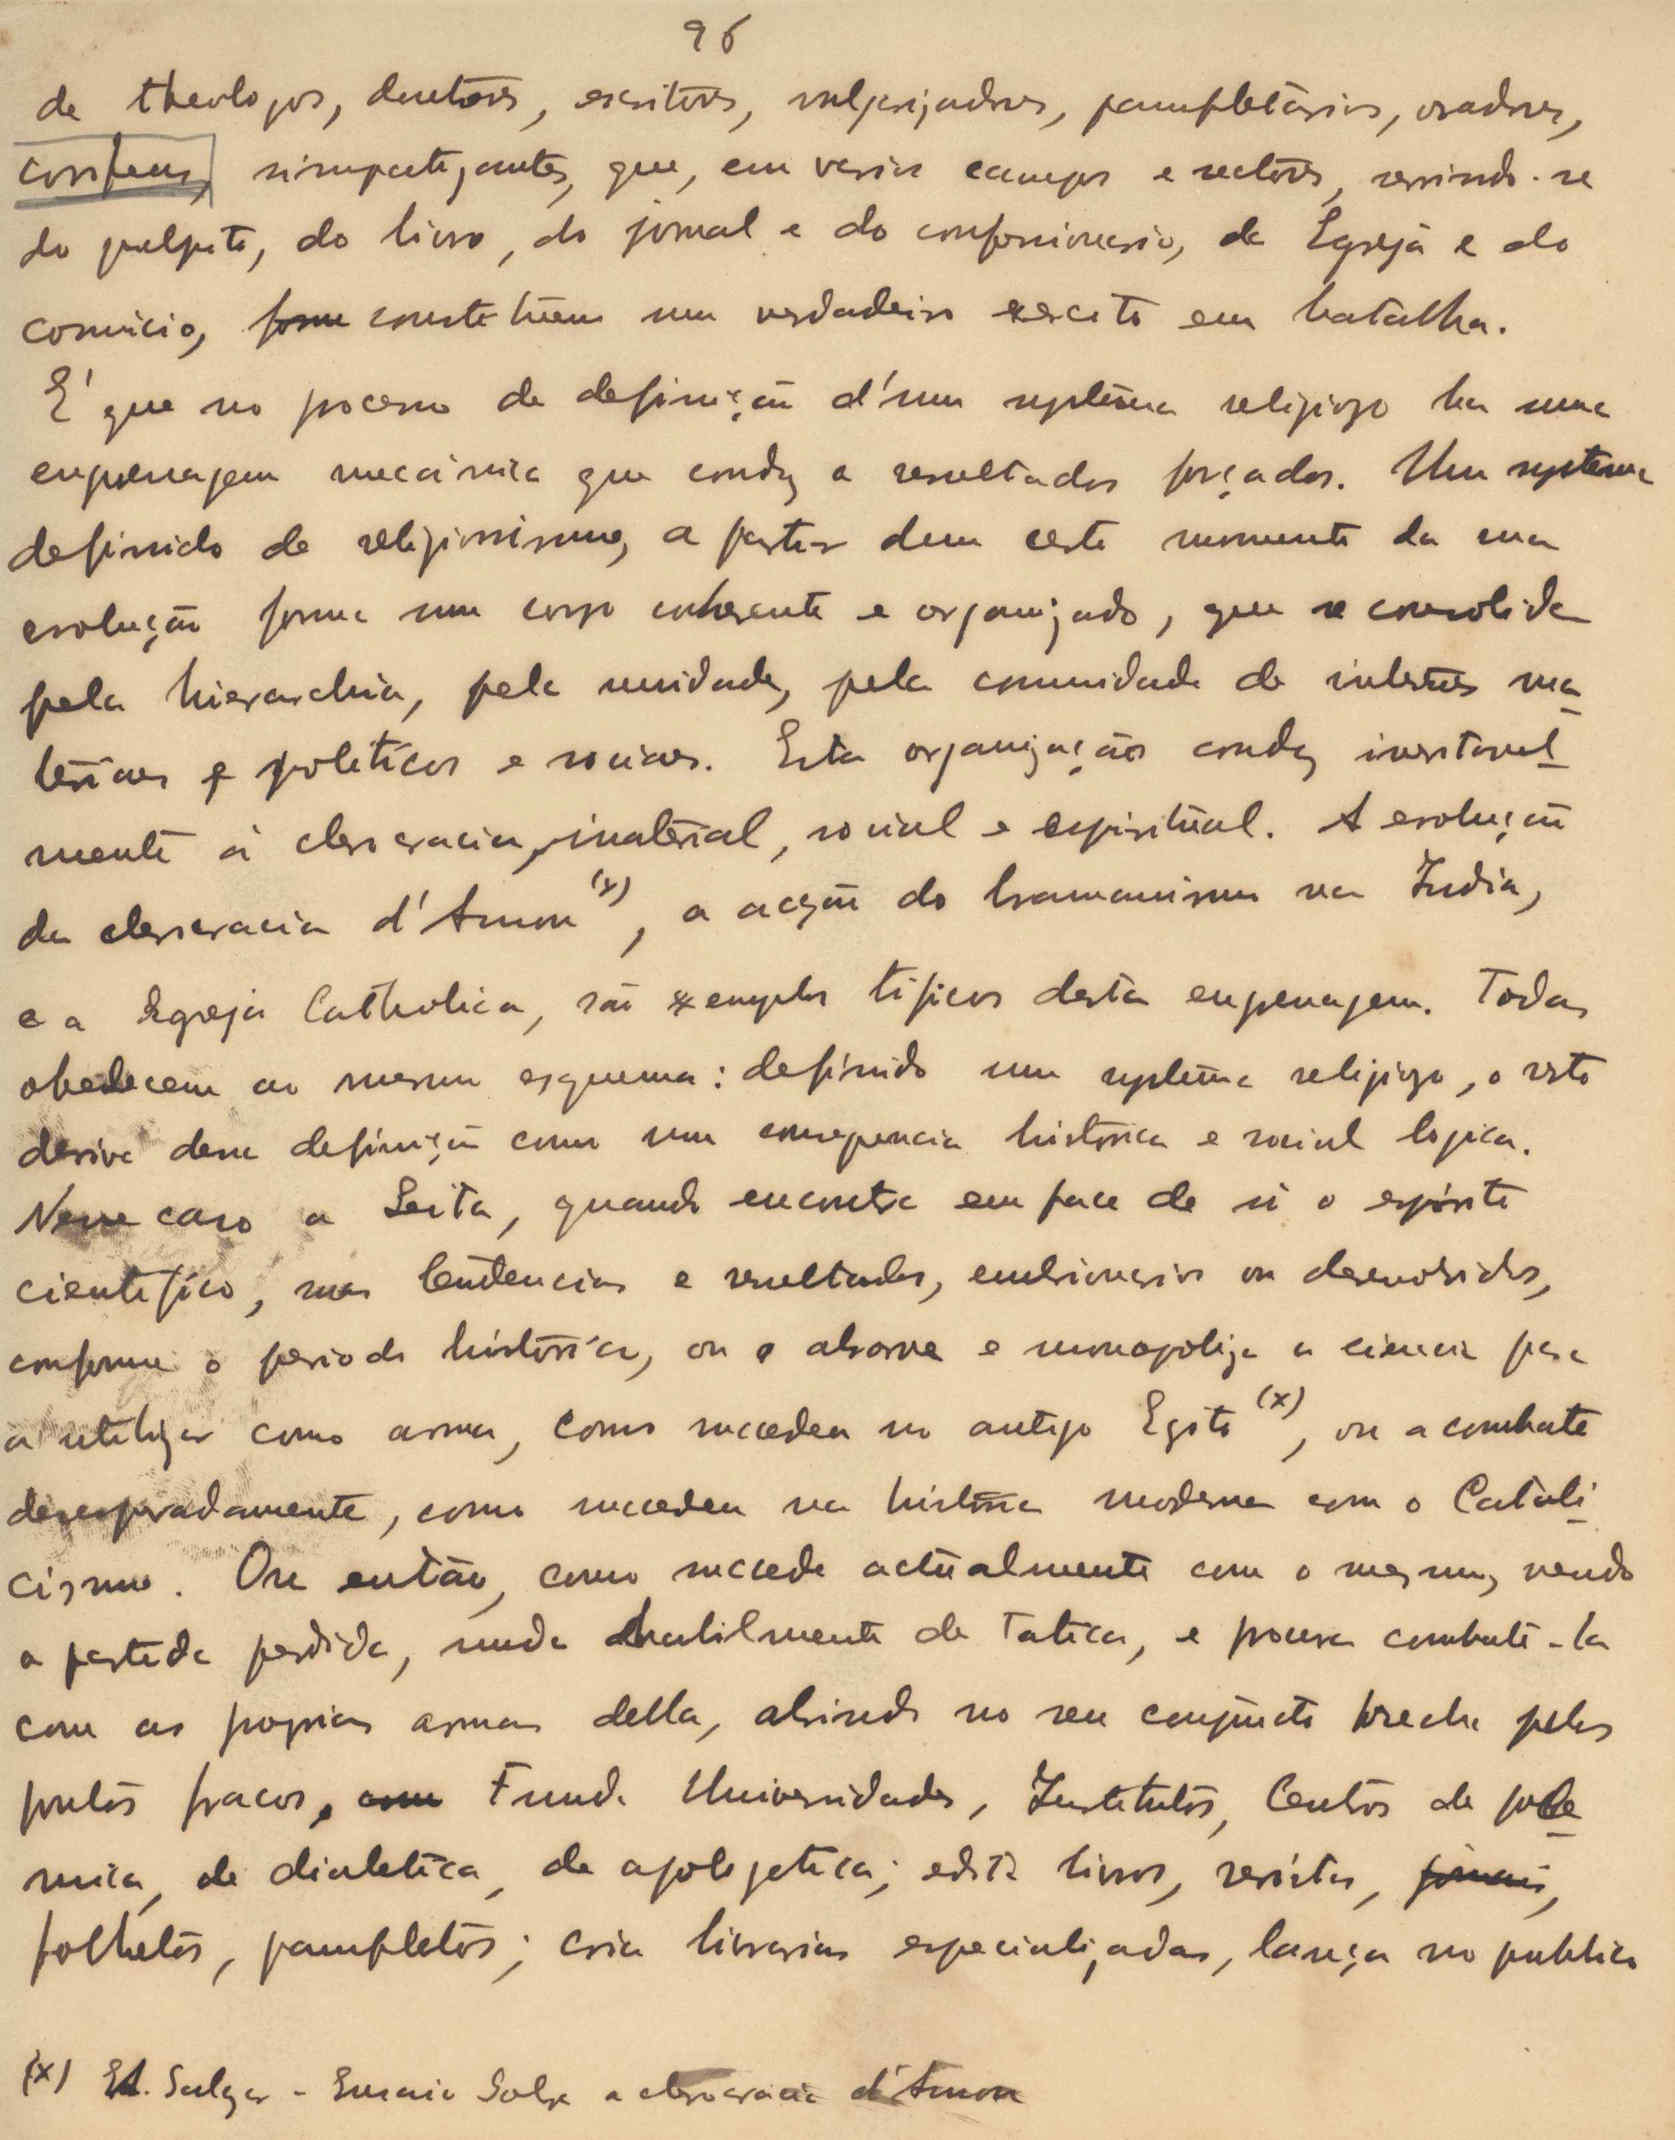 96
de theologos, doutores, escritores, vulgarizadores, pamfletarios, oradores,
simpatizantes, que, em varios campos e sectores, servindo-se
do pulpito, do livro, do jornal e do confessionario, da Egreja e do
comicio, constituem um verdadeiro exercito em batalha.
E' que no processo de definição d'um systema religiozo ha uma
engrenagem mecánica que conduz a resultados forçados. Um systema
definido de religionismo, a partir dum certo momento da sua
evolução forma um corpo coherente e organizado, que se consolida
pela hierarchia, pela unidade, pela comunidade de interesses ma-
teriaes e politicos e sociaes. Esta organização conduz inevitavel-
mente á clerocracia, material, social e espiritual. A evolução
da clerocracia d'Amon (x), a acção do bramanismo na India,
e a Egreja Catholica, são exemplos tipicos desta engrenagem. Todas
obedecem ao mesmo esquema: definido um systema religiozo, o resto
deriva dessa definição como uma consequencia histórica e social logica.
Nesse caso a Seita, quando encontra em face de si o espirito
cientifico, suas tendencias e resultados, embrionarios ou desenvolvidos,
conforme o periodo histórico, ou absorve e monopoliza a ciencia para
a utilizar como arma, como succedeu no antigo Egito (x), ou a combate
desesperadamente, como succedeu na história moderna com o Catoli-
cismo. Ou então, como succede actualmente com o mesmo, vendo
a partida perdida, muda habilmente de tatica, e procura combatê-la
com as proprias armas della, abrindo no seu conjuncto brecha pelos
pontos fracos. Funda Universidades, Institutos, Centros de pole-
mica, de dialetica, de apologetica; edita livros, revistas, jornais,
folhetos, pamfletos; cria livrarias especializadas, lança no publico
(x) Ed. Salgar - Ensaio Sobre a clerocracia d'Amon